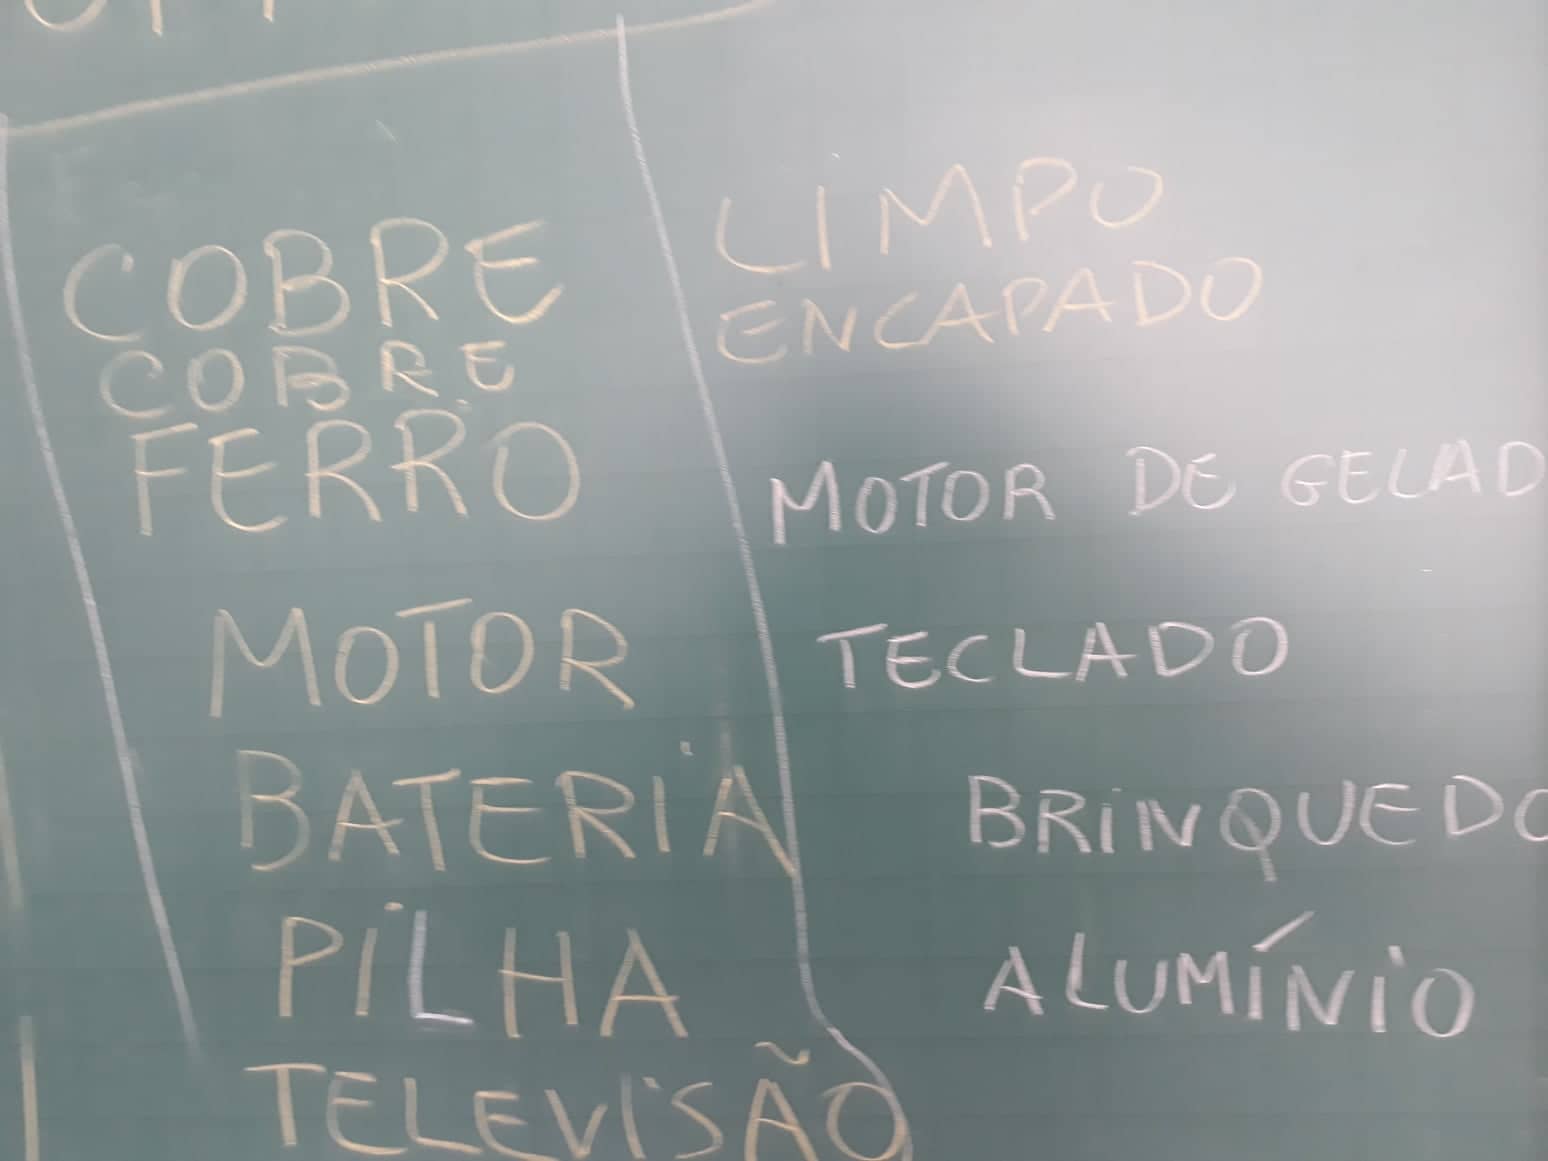 COBRE LIMPO
COBRE ENCAPADO
FERRO MOTOR DE GELAD
MOTOR TECLADO
BATERIA BRINQUEDO
PILHA ALUMÍNIO
TELEVISÃO